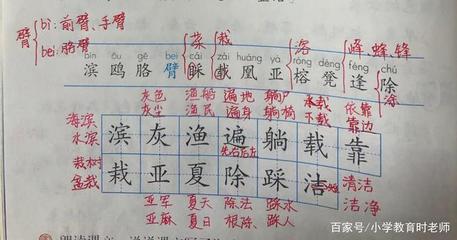 臂 bì: 前臂、手臂
bei: 胳臂
菜 栽 溶 峰、蜂、锋
bīn ōu gē bei cǎi zài huáng yà róng dèng féng chú
滨 鸥 胳 臂 踩 载 凰 亚 榕 凳 逢 除
涂
灰色 渔船 遍地 承载 依靠
灰尘 渔民 遍身 躺椅 下载 靠边
海滨
水滨
滨 灰 渔 遍 躺 载 靠
栽树
盆栽
栽 亚 夏 除 踩 洁
清洁
洁净
亚军 夏天 除法 踩水
亚麻 夏日 根除 踩人
百家号/小学教育时老师